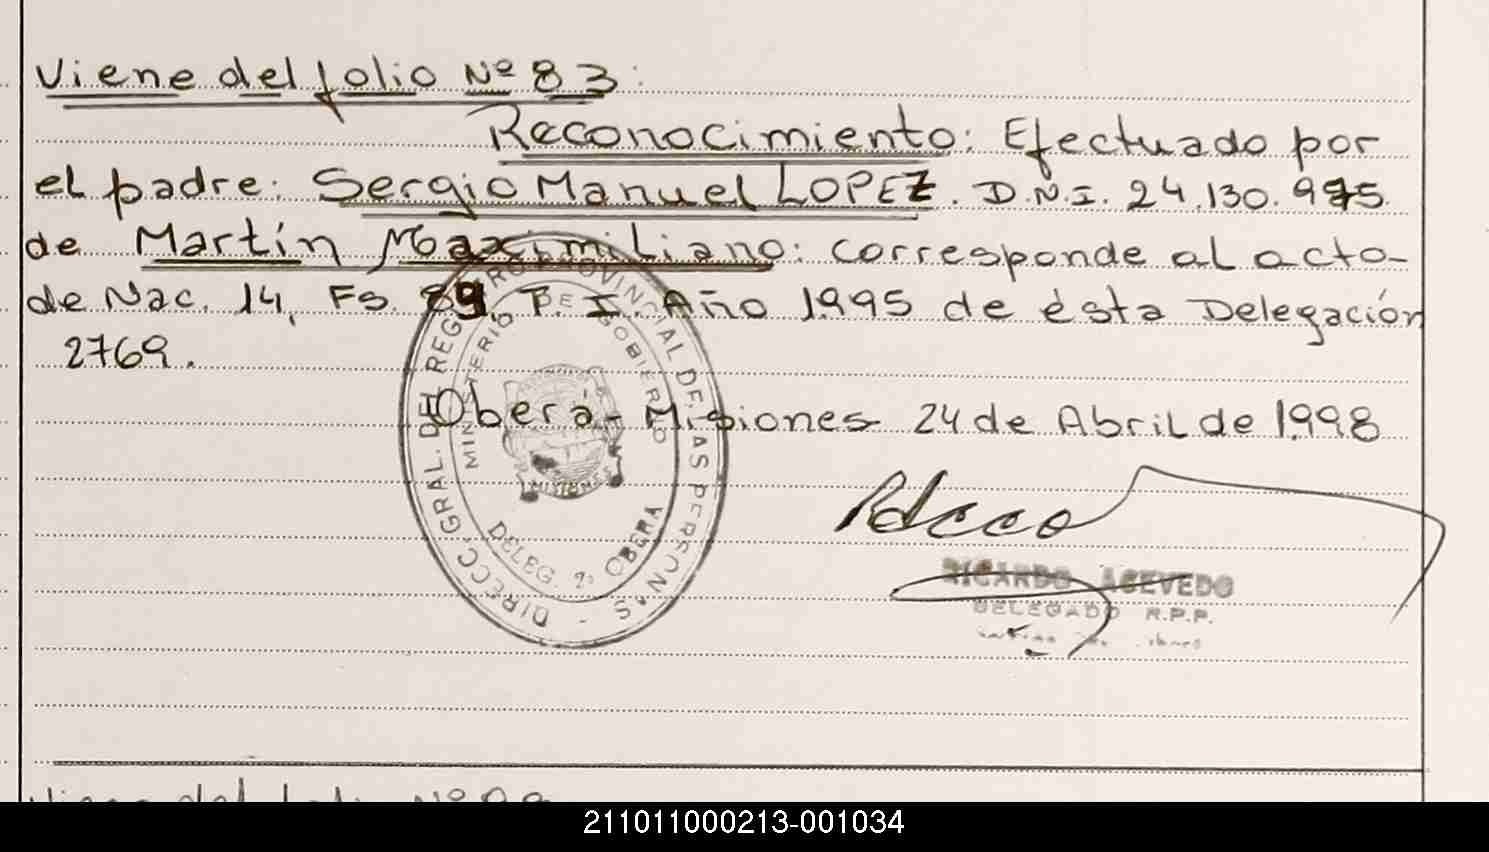 Viene del folio Nº 83:
Reconocimiento: Efectuado por
el padre: Sergio Manuel LOPEZ. D.N.I. 24.130.975
de Martín Maximiliano: corresponde al acto-
de Nac. 14, Fs. 89, T. I. Año 1995 de ésta Delegación
2769.
Oberá - Misiones 24 de Abril de 1998
DIRECC. GRAL. DEL REGISTRO PROVINCIAL DE LAS PERSONAS -
MINISTERIO DE GOBIERNO
MISIONES
OBERA
RICARDO ACEVEDO
DELEGADO R.P.P.
Viene del folio Nº
211011000213-001034